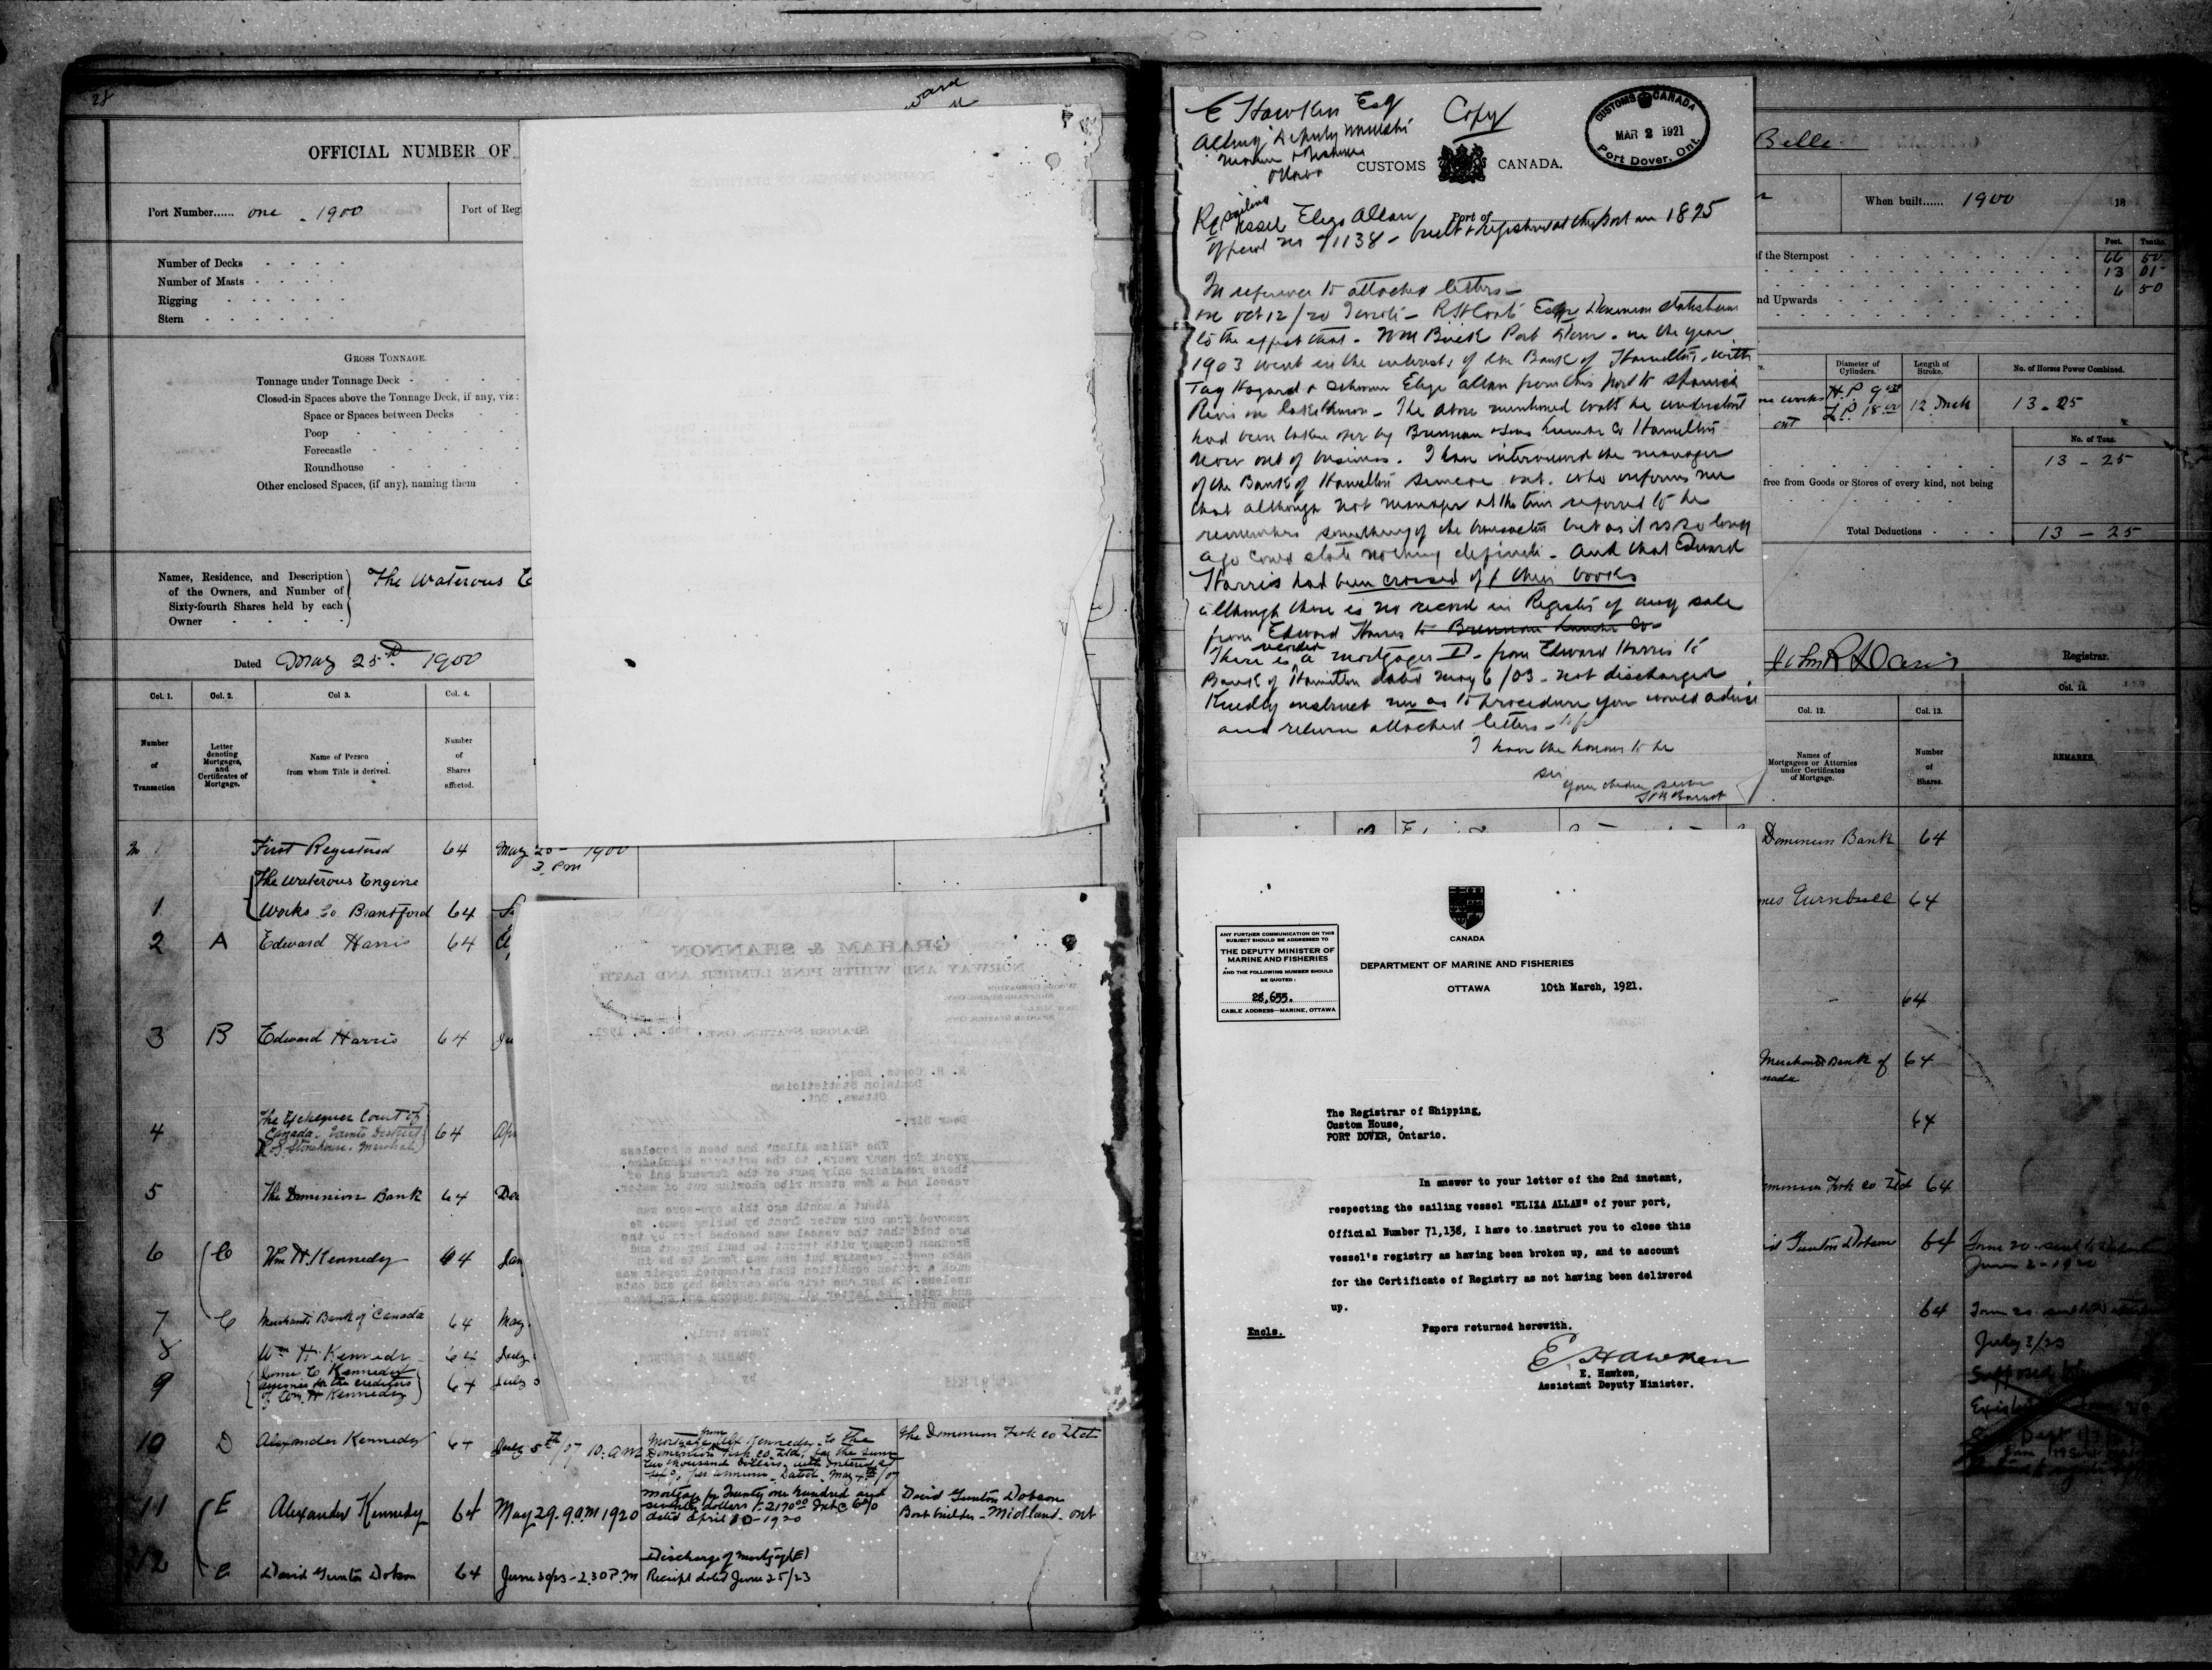 28
ward
OFFICIAL NUMBER OF
Port Number...... one - 1900
Port of Reg
Number of Decks
Number of Masts
Rigging
Stern
GROSS TONNAGE.
Tonnage under Tonnage Deck
Closed-in Spaces above the Tonnage Deck, if any, viz:
Space or Spaces between Decks
Poop
Forecastle
Roundhouse
Other enclosed Spaces, (if any), naming them
Names, Residence, and Description
of the Owners, and Number of
Sixty-fourth Shares held by each
Owner
The Waterous E
Dated May 25th 1900
Col. 1. Col. 2. Col 3. Col. 4.
Number of Transaction
Letter denoting Mortgages, and Certificates of Mortgage.
Name of Person from whom Title is derived.
Number of Shares affected.
First Registered 64 May 25 - 1900
3 Pm
The Waterous Engine
1 Works Co Brantford 64
2 A Edward Harris 64
3 B Edward Harris 64
The Exchequer Court of
4 Canada. District 64 Apr
Marshal
5 The Dominion Bank 64 Dec
6 C Wm H. Kennedy 64 Jan
7 C Merchants Bank of Canada 64 May
8 Wm H. Kennedy 64 July
James C Kennedy
9 assignee for the creditors 64 July
of Wm H Kennedy
10 D Alexander Kennedy 64 July 5th/07 10. a.m
Mortgage from Alex Kennedy to the
Dominion Fork Co. Ltd. for the sum
two thousand Dollars with interest at
per annum. Dated May 4th/07
The Dominion Fork Co Ltd
11 E Alexander Kennedy 64 May 29. 9 a.m 1920
Mortgage for Twenty one hundred and
seventy dollars $2170.00 Int @ 6%
dated April 10 - 1920
David Gunton Dobson
Boat builder - Midland. ont
12 E David Gunton Dobson 64 June 30/23 - 2.30 P.M
Discharge of Mortgage (E)
Receipt dated June 25/23
GRAHAM & SHANNON
NORWAY AND WHITE PINE LUMBER AND LATH
SPANISH STATION, ONT., Feb. 14, 1921.
R. H. Coats, Esq.,
Dominion Statistician
Ottawa, Ont.
Dear Sir:-
The "Eliza Allan" has been a hopeless
wreck for many years, to the writer's knowledge,
there remaining only part of the forward end of
vessel and a few stern ribs showing out of water.
About a month ago this eye-sore was
removed from our water front by burning same. We
are told that the vessel was beached here by the
Brennan Company with intent to haul her out and
make costly repairs but she was found to be in
such a rotten condition that attempted repair was
useless.
Yours truly,
E Hawken Esq
Acting Deputy Minister
Marine & Fisheries
Ottawa
Copy
CUSTOMS CANADA
MAR 2 1921
Port Dover, Ont.
CUSTOMS CANADA.
Port of
Re sailing Vessel Eliza Allan
Official no 71138 - built & registered at this port in 1875
In reference to attached letters -
on Oct 12/20 I wrote - R H Coats Esqre Dominion statistician
to the effect that - Wm Buck Port Dover - in the year
1903 went in the interests of the Bank of Hamilton, with
Tug Hazard & Schooner Eliza Allan from this port to Spanish
River on Lake Huron - The above mentioned boats he understood
had been taken over by Brennan & Sons Lumber Co Hamilton
now out of business. I have interviewed the manager
of the Bank of Hamilton Simcoe ont. who informs me
that although not manager at the time referred to he
remembers something of the transaction but as it is so long
ago could state nothing definite - And that Edward
Harris had been crossed off their books
although there is no record in Register of any sale
from Edward Harris to Brennan Lumber Co -
There is recorded a mortgage D - from Edward Harris to
Bank of Hamilton dated May 6/03 - not discharged
Kindly instruct me as to procedure you would advise
and return attached letters -
I have the honour to be
Sir
Your obedient servant
CANADA
ANY FURTHER COMMUNICATION ON THIS
SUBJECT SHOULD BE ADDRESSED TO
THE DEPUTY MINISTER OF
MARINE AND FISHERIES
AND THE FOLLOWING NUMBER SHOULD
BE QUOTED:
28,655.
CABLE ADDRESS—MARINE, OTTAWA
DEPARTMENT OF MARINE AND FISHERIES
OTTAWA 10th March, 1921.
The Registrar of Shipping,
Custom House,
PORT DOVER, Ontario.
In answer to your letter of the 2nd instant,
respecting the sailing vessel "ELIZA ALLAN" of your port,
Official Number 71,138, I have to instruct you to close this
vessel's registry as having been broken up, and to account
for the Certificate of Registry as not having been delivered
up.
Encls. Papers returned herewith.
E Hawken
E. Hawken,
Assistant Deputy Minister.
Belle
When built...... 1900 18
Feet. Tenths.
of the Sternpost 66 50
13 01
nd Upwards 6 50
Diameter of Cylinders. Length of Stroke. No. of Horses Power Combined.
ne works H.P. 9
ont L.P. 18 12 Inch 13 - 25
No. of Tons.
13 - 25
free from Goods or Stores of every kind, not being
Total Deductions 13 - 25
Registrar.
Col. 12. Col. 13. Col. 14.
Names of Mortgagees or Attornies under Certificates of Mortgage.
Number of Shares.
REMARKS.
Dominion Bank 64
mes Turnbull 64
64
Merchants Bank of 64
nada
64
ominion Fork Co Ltd 64
id Gunton Dobson 64 Form 20. sent to Department
June 2 - 1920
64 Form 20. sent to Department
July 3/23
Supposed